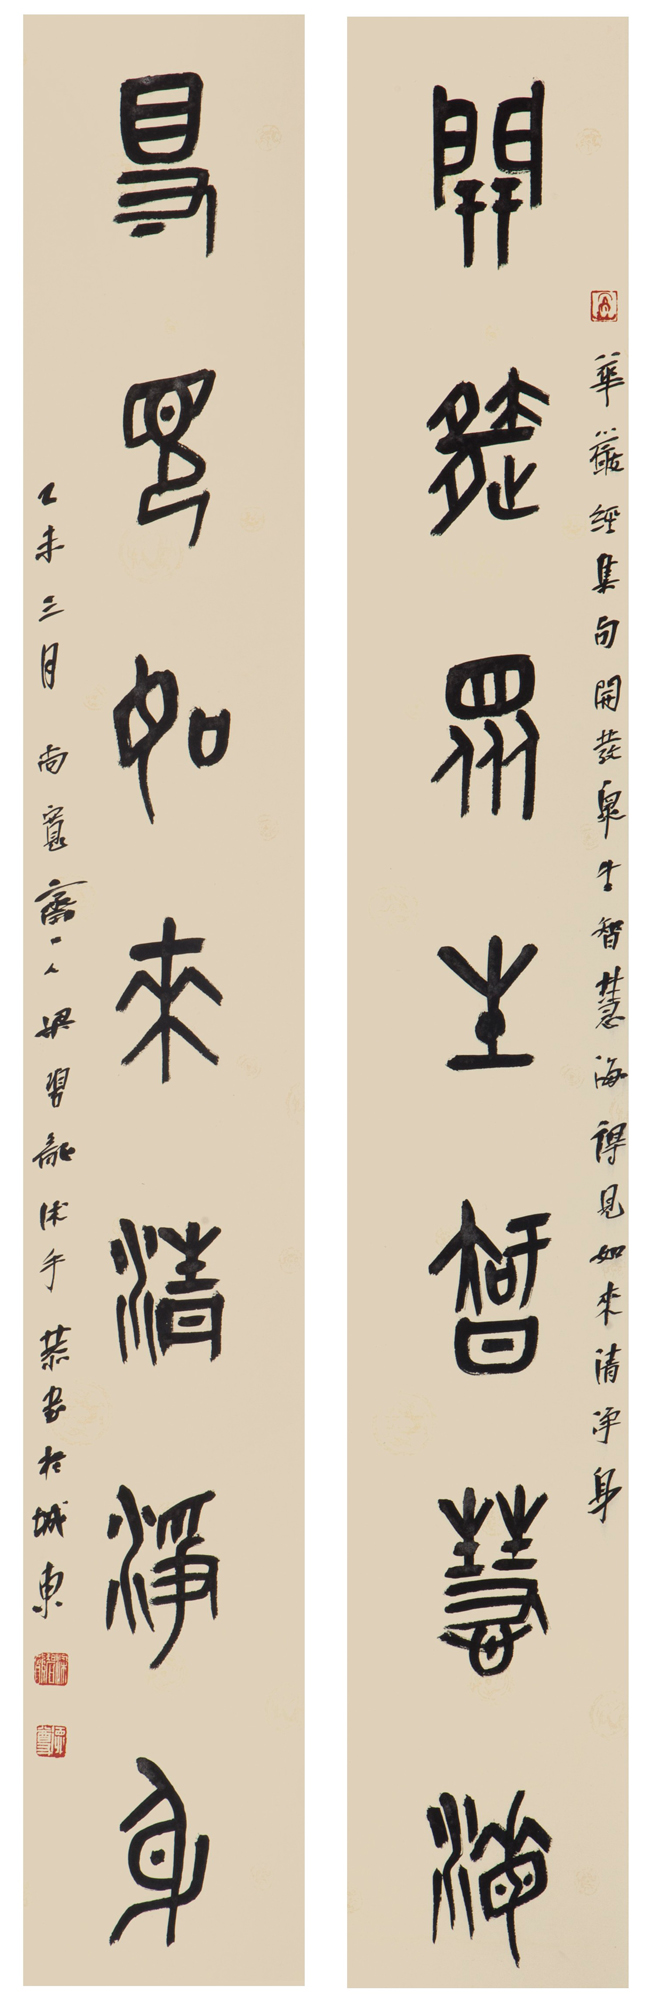 華嚴經集句開發眾生智慧海得見如來清淨身
開發眾生智慧海
得見如來清淨身
乙未三月尚寬齋一人梁習融沐手恭書於城東